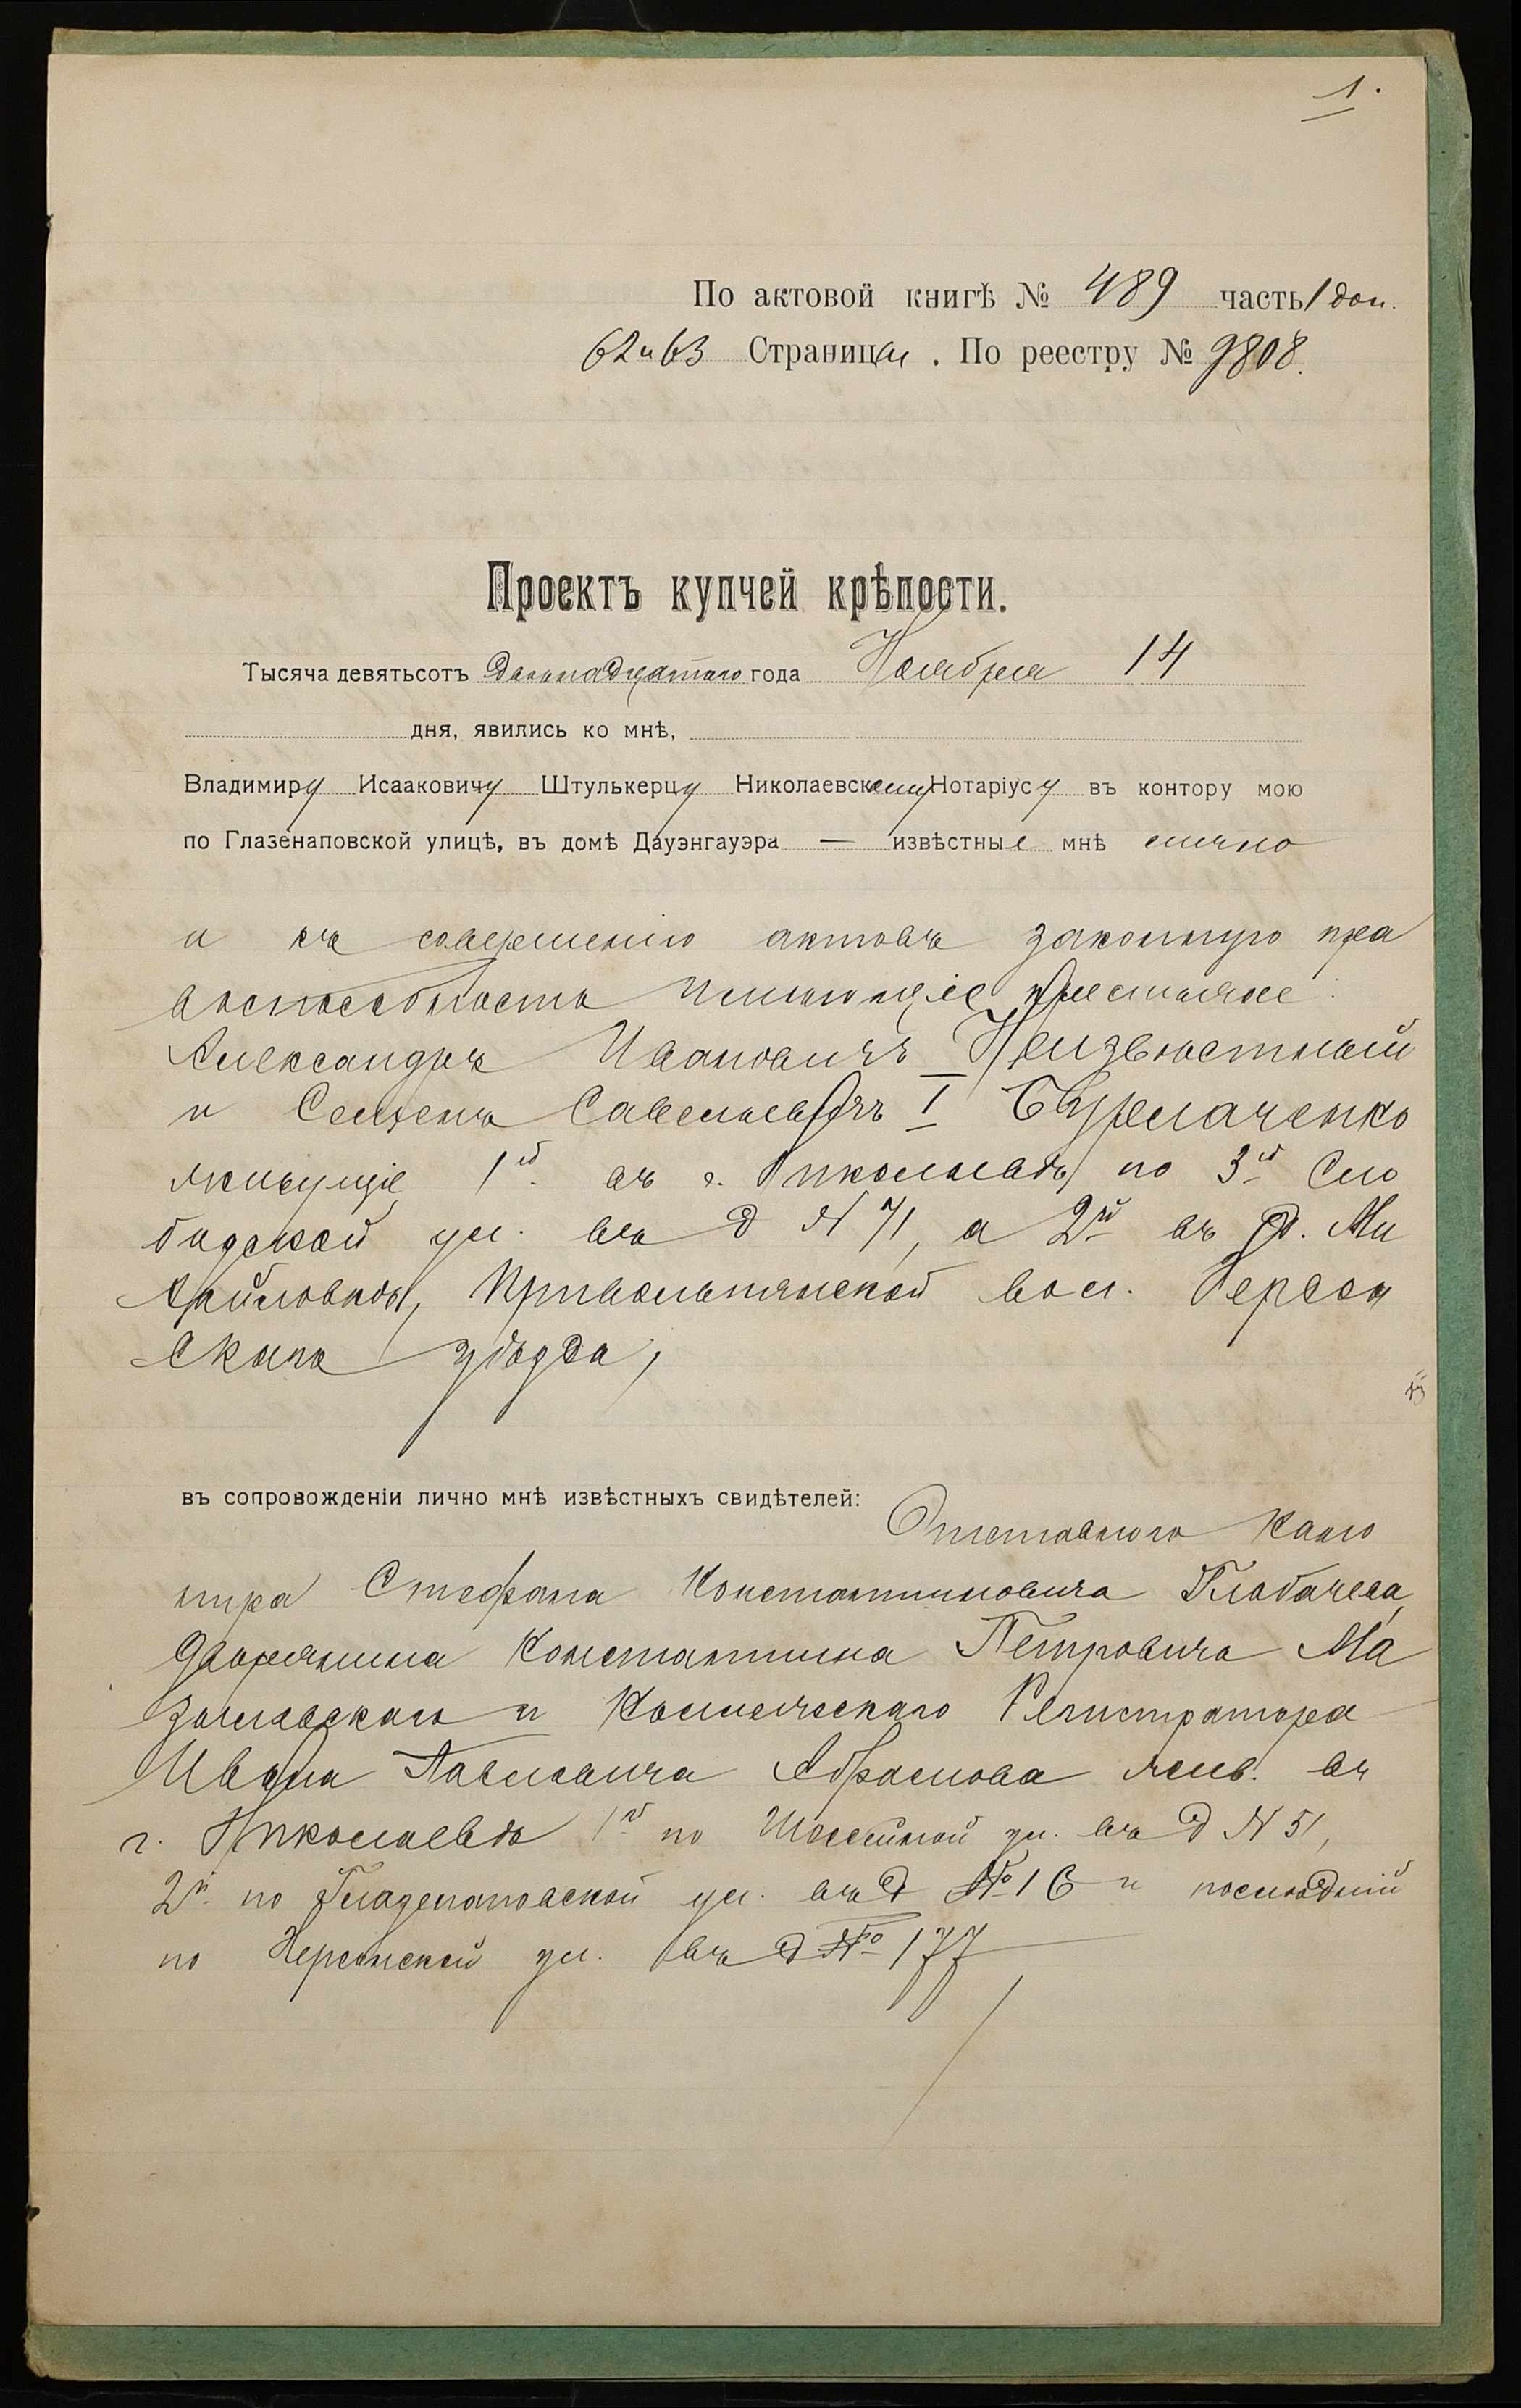 1.
По актовой книгѣ № 489 часть 1 доп.
62 и 63 Страницы. По реестру № 9808.
Проектъ купчей крѣпости.
Тысяча девятьсотъ двѣнадцатаго года Ноября 14
дня, явились ко мнѣ,
Владимиру Исааковичу Штулькерцу Николаевскому Нотаріусу въ контору мою
по Глазенаповской улицѣ, въ домѣ Дауэнгауэра — извѣстные мнѣ лично
и къ совершенію актовъ законную пра
воспособность имѣющіе крестьяне:
Александръ Ивановичъ Неизвѣстный
и Семенъ Савельевичъ Бурлаченко
живущіе 1й въ г. Николаевѣ по 3й Сло
бодской ул. въ д № 71, а 2й въ д. Ми
хайловкѣ, Привольнянской вол. Херсон
скаго уѣзда,
въ сопровожденіи лично мнѣ извѣстныхъ свидѣтелей: Отставного Кано
нира Стефана Константиновича Глобачева,
дворянина Константина Петровича Ма
зилевскаго и Коллежскаго Регистратора
Ивана Павловича Абрамова жив. въ
г. Николаевѣ 1й по Шоссейной ул. въ д № 51,
2й по Глазенаповской ул. въ д № 16 и послѣдній
по Херсонской ул. въ д № 177